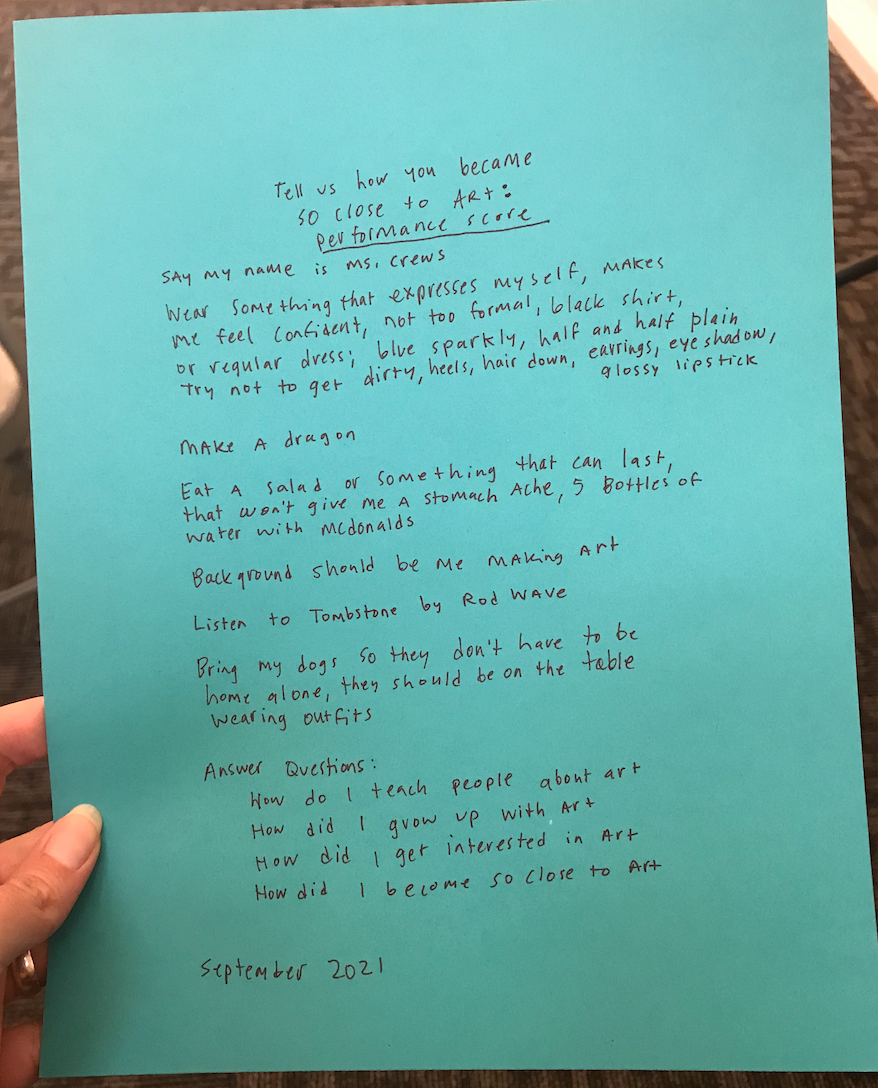 Tell us how you became
so close to ART:
performance score
SAY my name is Ms. Crews
Wear something that expresses myself, MAKES
me feel confident, not too formal, black shirt,
or regular dress; blue sparkly, half and half plain
Try not to get dirty, heels, hair down, earrings, eye shadow,
glossy lipstick
MAKE A dragon
Eat A salad or something that can last,
that won't give me A stomach Ache, 5 Bottles of
water with McDonalds
Background should be Me MAKing Art
Listen to Tombstone by Rod WAVE
Bring my dogs so they don't have to be
home alone, they should be on the table
wearing outfits
Answer Questions:
How do I teach people about art
How did I grow up with Art
How did I get interested in Art
How did I become so close to Art
September 2021